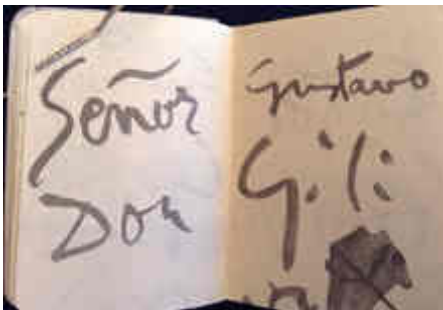 Señor
Don
Gustavo
Gili